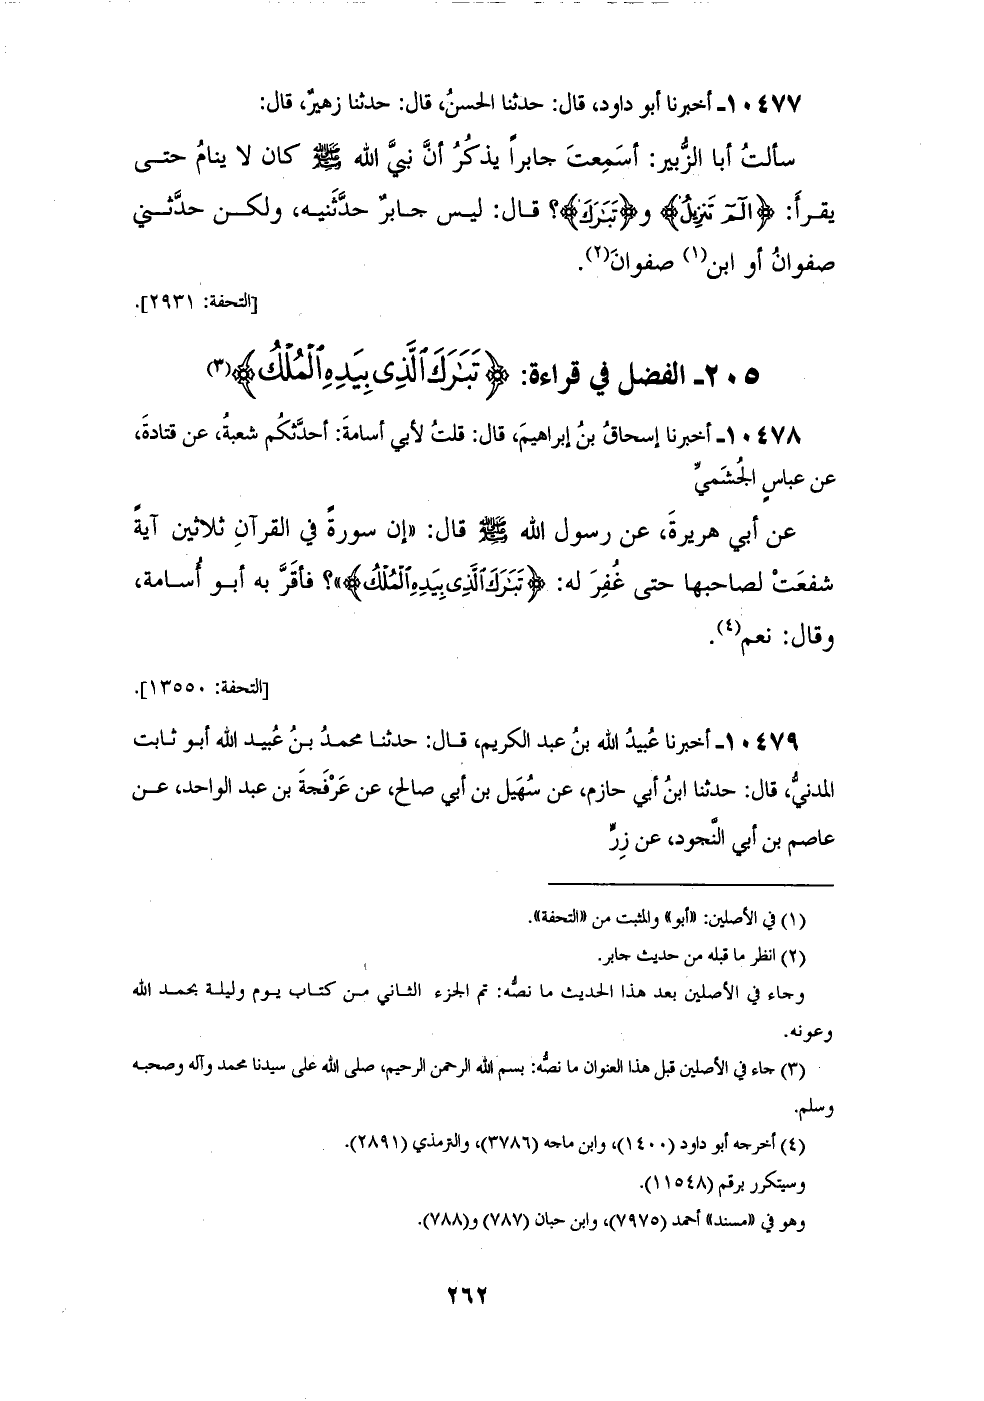 ١٠٤٧٧ـ أخبرنا أبو داود، قال: حدثنا الحسنُ، قال: حدثنا زهيرٌ، قال:
سألتُ أبا الزُّبير: أسَمِعتَ جابراً يذكُرُ أنَّ نبيَّ الله ﷺ كان لا ينامُ حتـى
يقـرأَ: ﴿الٓمٓ تَنزِيلُ﴾ و﴿تَبَٰرَكَ﴾؟ قـال: ليـس جـابرٌ حدَّثَنيـه، ولكـن حدَّثـني
صفوانُ أو ابن(١) صفوانَ(٢).
[التحفة: ٢٩٣١].
٢٠٥ـ الفضل في قراءة: ﴿تَبَٰرَكَ ٱلَّذِى بِيَدِهِ ٱلْمُلْكُ﴾(٣)
١٠٤٧٨ـ أخبرنا إسحاقُ بنُ إبراهيمَ، قال: قلتُ لأبي أسامةَ: أحدَّثكُم شعبةُ، عن قتادةَ،
عن عباسٍ الجُشَميِّ
عن أبي هريرةَ، عن رسول الله ﷺ قال: «إن سورةً في القرآنِ ثلاثين آيةً
شفعَتْ لصاحبها حتى غُفِرَ له: ﴿تَبَٰرَكَ ٱلَّذِى بِيَدِهِ ٱلْمُلْكُ﴾»؟ فأقَرَّ به أبـو أُسـامة،
وقال: نعم(٤).
[التحفة: ١٣٥٥٠].
١٠٤٧٩ـ أخبرنا عُبيدُ الله بنُ عبد الكريم، قـال: حدثنـا محمدُ بـنُ عُبيـد الله أبـو ثـابت
المدنيُّ، قال: حدثنا ابنُ أبي حازم، عن سُهَيل بن أبي صالح، عن عَرْفَجةَ بن عبد الواحد، عـن
عاصم بن أبي النَّجود، عن زِرٍّ
(١) في الأصلين: «أبو» والمثبت من «التحفة».
(٢) انظر ما قبله من حديث جابر.
وجاء في الأصلين بعد هذا الحديث ما نصُّه: تم الجزء الثـاني مـن كتـاب يـوم وليلـة بحمـد الله
وعونه.
(٣) جاء في الأصلين قبل هذا العنوان ما نصُّه: بسم الله الرحمن الرحيم، صلى الله على سيدنا محمد وآله وصحبـه
وسلم.
(٤) أخرجه أبو داود (١٤٠٠)، وابن ماجه (٣٧٨٦)، والترمذي (٢٨٩١).
وسيتكرر برقم (١١٥٤٨).
وهو في «مسند» أحمد (٧٩٧٥)، وابن حبان (٧٨٧) و(٧٨٨).
٢٦٢